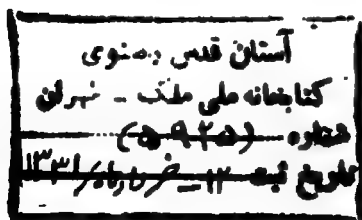 آستان قدس رضوی
کتابخانه ملی ملک - تهران
شماره (۵۹۲۵)
تاریخ ثبت ۱۲ خرداد ۱۳۳۱